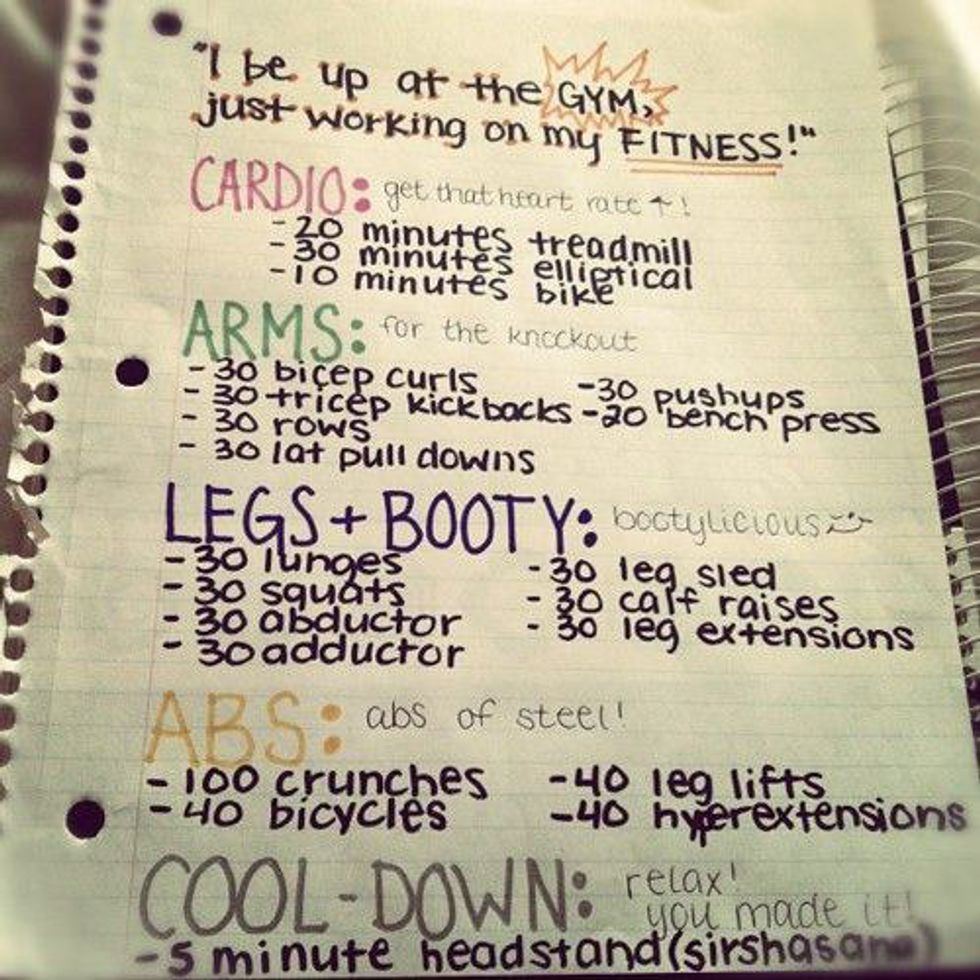 "I be up at the GYM,
just working on my FITNESS!"
CARDIO: get that heart rate ↑!
-20 minutes treadmill
-30 minutes elliptical
-10 minutes bike
ARMS: for the knockout
-30 bicep curls
-30 tricep kickbacks
-30 rows
-30 lat pull downs
-30 pushups
-20 bench press
LEGS + BOOTY: bootylicious
-30 lunges
-30 squats
-30 abductor
-30 adductor
-30 leg sled
-30 calf raises
-30 leg extensions
ABS: abs of steel!
-100 crunches
-40 bicycles
-40 leg lifts
-40 hyperextensions
COOL-DOWN: relax!
you made it!
-5 minute headstand (sirshasana)